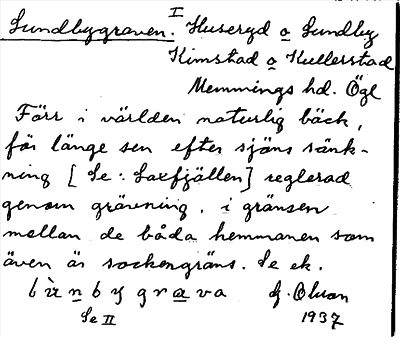 Sundbygraven. I Huseryd o Sundby
Kimstad o Kullerstad
Memmings hd. Ögl
Förr i världen naturlig bäck,
för länge sen efter sjöns sänk-
ning [Se: Laxfjällen] reglerad
genom grävning, i gränsen
mellan de båda hemmanen som
även är sockengräns. Se ek.
G. Olson
Se II 1937